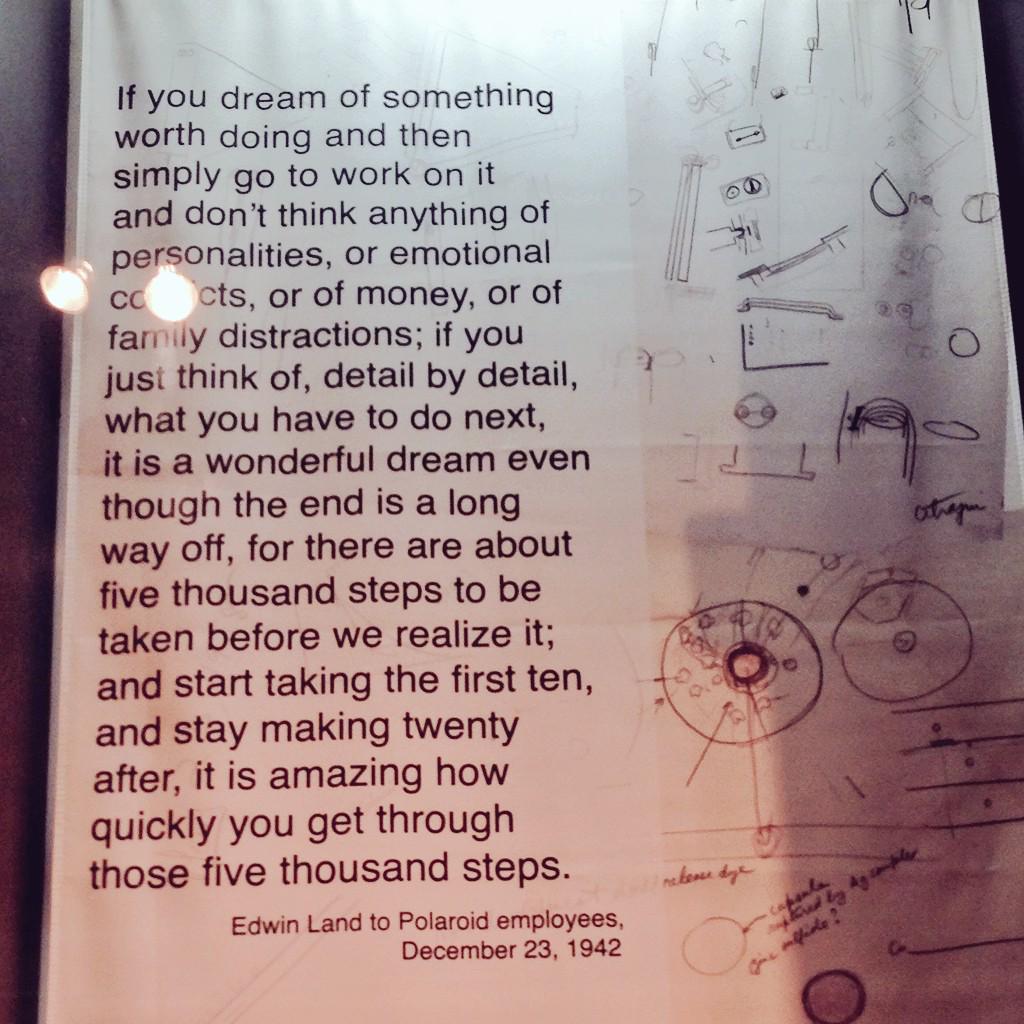 If you dream of something
worth doing and then
simply go to work on it
and don't think anything of
personalities, or emotional
conflicts, or of money, or of
family distractions; if you
just think of, detail by detail,
what you have to do next,
it is a wonderful dream even
though the end is a long
way off, for there are about
five thousand steps to be
taken before we realize it;
and start taking the first ten,
and stay making twenty
after, it is amazing how
quickly you get through
those five thousand steps.
Edwin Land to Polaroid employees,
December 23, 1942
release dye
capsule
ruptured by Ag complex
give sulfide?